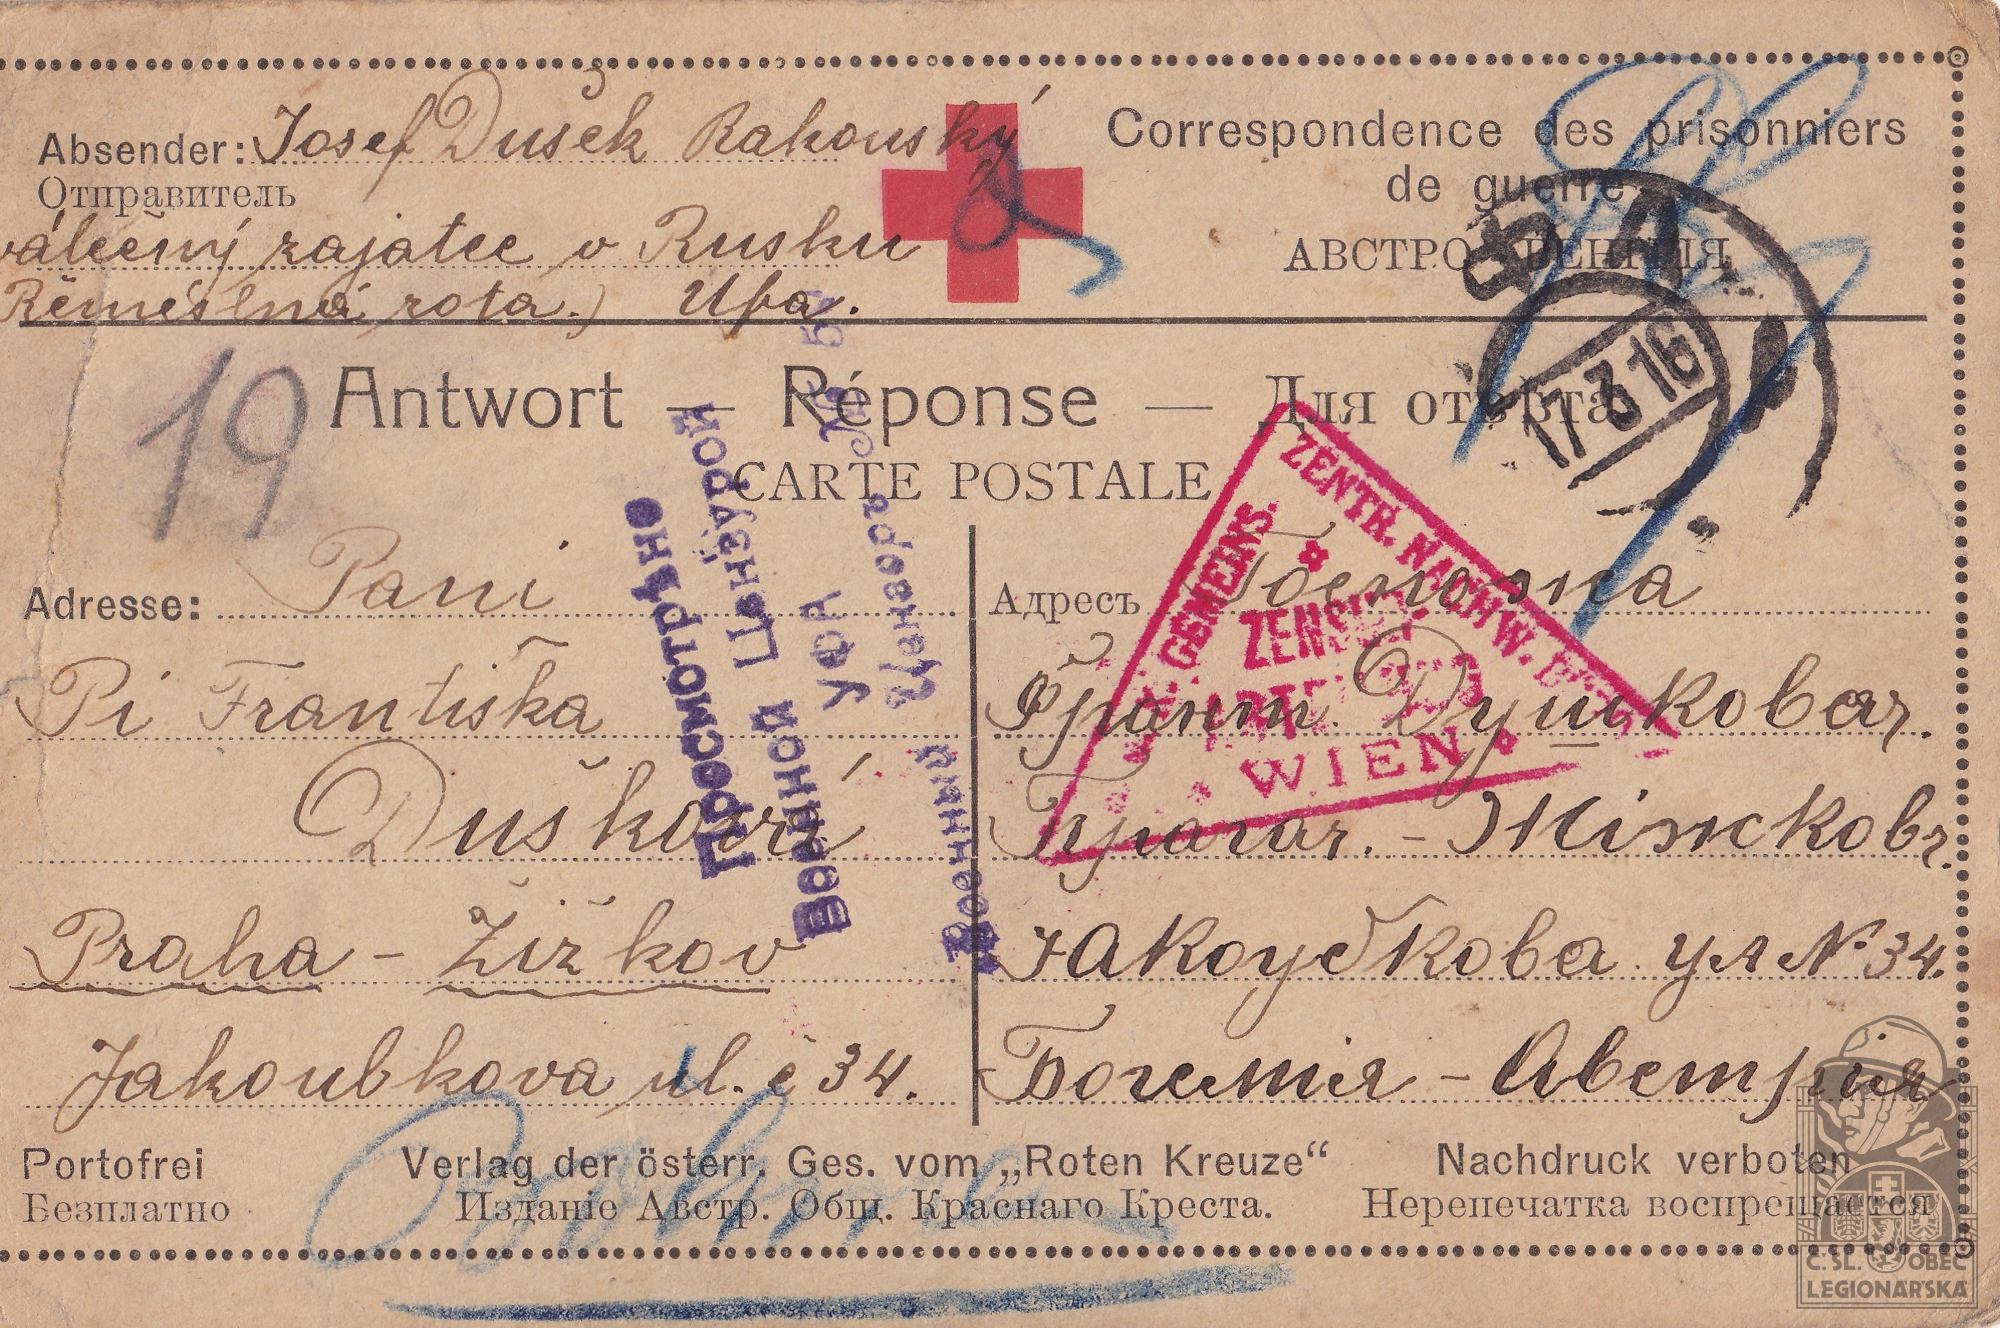 Absender: Josef Dušek Rakouský
Отправитель
válečný zajatec v Rusku
Řemeslná rota.) Ufa.
Correspondence des prisonniers
de guerre
АВСТРО ВЕНГРІЯ
17 3 16
19
Antwort — Réponse — Для отвѣта
CARTE POSTALE
Просмотрѣно
Военной Цензурой
УФА
Военный Цензоръ №
GEMEINS. ZENTR. NACHW.
ZENSUR
WIEN
Adresse: Paní
Pí Františka
Dušková
Praha - Žižkov
Jakoubkova ul. č 34.
Адресъ Госпожа
Франт. Душковая.
Прагаг. - Жижковъ.
Якоубкова ул № 34.
Богемія - Австрія
Portofrei
Безплатно
Verlag der österr. Ges. vom „Roten Kreuze“
Изданіе Австр. Общ. Краснаго Креста.
Nachdruck verboten
Неrепечатка воспрещается
Č. SL. OBEC
LEGIONÁŘSKÁ